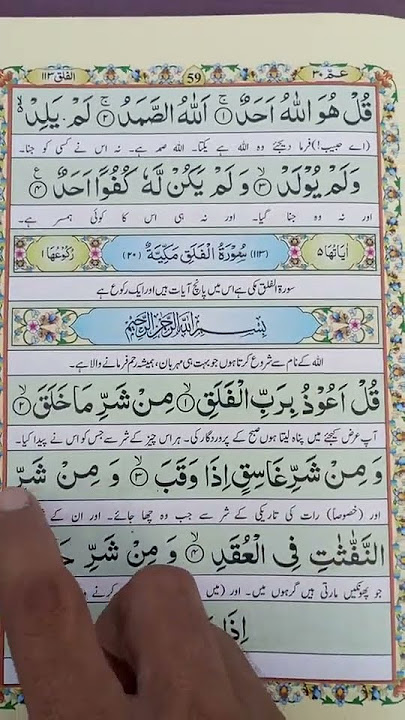 عمّ ٣٠ 59 الفلق ١١٣
قُلْ هُوَ اللّٰهُ اَحَدٌ ۚ﴿۱﴾ اَللّٰهُ الصَّمَدُ ۚ﴿۲﴾ لَمْ یَلِدْ ۙ۬
(اے حبیب!) فرما دیجئے وہ اللہ ہے یکتا۔ اللہ صمد ہے۔ نہ اس نے کسی کو جنا۔
وَ لَمْ یُوْلَدْ ۙ﴿۳﴾ وَ لَمْ یَكُنْ لَّهٗ كُفُوًا اَحَدٌ ﴿۴﴾
اور نہ وہ جنا گیا۔ اور نہ ہی اس کا کوئی ہمسر ہے۔
اٰیَاتُهَا ٥ (١١٣) سُوْرَةُ الْفَلَقِ مَكِّیَّةٌ (٢٠) رُكُوْعُهَا ١
سورۃ الفلق مکی ہے اس میں پانچ آیات ہیں اور ایک رکوع ہے
بِسْمِ اللّٰهِ الرَّحْمٰنِ الرَّحِیْمِ
اللہ کے نام سے شروع کرتا ہوں جو بہت ہی مہربان، ہمیشہ رحم فرمانے والا ہے۔
قُلْ اَعُوْذُ بِرَبِّ الْفَلَقِ ۙ﴿۱﴾ مِنْ شَرِّ مَا خَلَقَ ۙ﴿۲﴾
آپ عرض کیجئے میں پناہ لیتا ہوں صبح کے پروردگار کی۔ ہر اس چیز کے شر سے جس کو اس نے پیدا کیا۔
وَ مِنْ شَرِّ غَاسِقٍ اِذَا وَقَبَ ۙ﴿۳﴾ وَ مِنْ شَرِّ
اور (خصوصاً) رات کی تاریکی کے شر سے جب وہ چھا جائے۔ اور ان کے
النَّفّٰثٰتِ فِی الْعُقَدِ ۙ﴿۴﴾ وَ مِنْ شَرِّ
جو پھونکیں مارتی ہیں گرہوں میں۔ اور (میں کرنے
اِذَا